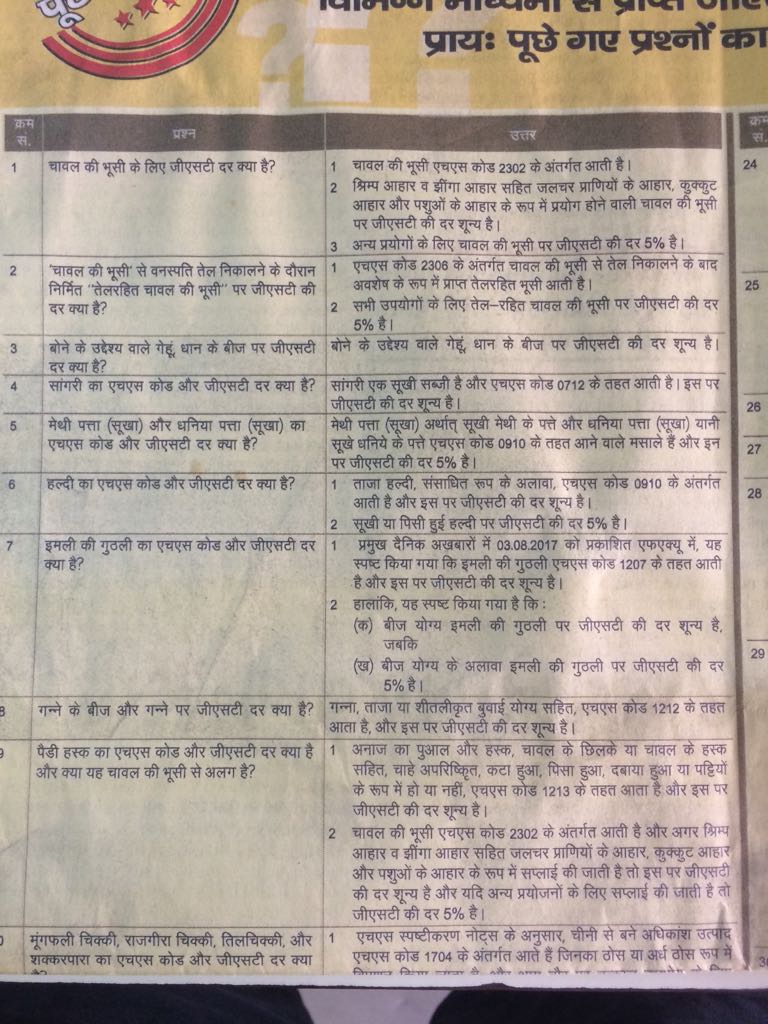 पूछे गए
प्रायः पूछे गए प्रश्नों का
क्रम सं.
प्रश्न
उत्तर
1
चावल की भूसी के लिए जीएसटी दर क्या है?
1 चावल की भूसी एचएस कोड 2302 के अंतर्गत आती है।
2 श्रिम्प आहार व झींगा आहार सहित जलचर प्राणियों के आहार, कुक्कुट
आहार और पशुओं के आहार के रूप में प्रयोग होने वाली चावल की भूसी
पर जीएसटी की दर शून्य है।
3 अन्य प्रयोगों के लिए चावल की भूसी पर जीएसटी की दर 5% है।
2
'चावल की भूसी' से वनस्पति तेल निकालने के दौरान
निर्मित "तेलरहित चावल की भूसी" पर जीएसटी की
दर क्या है?
1 एचएस कोड 2306 के अंतर्गत चावल की भूसी से तेल निकालने के बाद
अवशेष के रूप में प्राप्त तेलरहित भूसी आती है।
2 सभी उपयोगों के लिए तेल-रहित चावल की भूसी पर जीएसटी की दर
5% है।
3
बोने के उद्देश्य वाले गेहूं, धान के बीज पर जीएसटी
दर क्या है?
बोने के उद्देश्य वाले गेहूं, धान के बीज पर जीएसटी की दर शून्य है।
4
सांगरी का एचएस कोड और जीएसटी दर क्या है?
सांगरी एक सूखी सब्जी है और एचएस कोड 0712 के तहत आती है। इस पर
जीएसटी की दर शून्य है।
5
मेथी पत्ता (सूखा) और धनिया पत्ता (सूखा) का
एचएस कोड और जीएसटी दर क्या है?
मेथी पत्ता (सूखा) अर्थात् सूखी मेथी के पत्ते और धनिया पत्ता (सूखा) यानी
सूखे धनिये के पत्ते एचएस कोड 0910 के तहत आने वाले मसाले हैं और इन
पर जीएसटी की दर 5% है।
6
हल्दी का एचएस कोड और जीएसटी दर क्या है?
1 ताजा हल्दी, संसाधित रूप के अलावा, एचएस कोड 0910 के अंतर्गत
आती है और इस पर जीएसटी की दर शून्य है।
2 सूखी या पिसी हुई हल्दी पर जीएसटी की दर 5% है।
7
इमली की गुठली का एचएस कोड और जीएसटी दर
क्या है?
1 प्रमुख दैनिक अखबारों में 03.08.2017 को प्रकाशित एफएक्यू में, यह
स्पष्ट किया गया कि इमली की गुठली एचएस कोड 1207 के तहत आती
है और इस पर जीएसटी की दर शून्य है।
2 हालांकि, यह स्पष्ट किया गया है कि :
(क) बीज योग्य इमली की गुठली पर जीएसटी की दर शून्य है,
जबकि
(ख) बीज योग्य के अलावा इमली की गुठली पर जीएसटी की दर
5% है।
8
गन्ने के बीज और गन्ने पर जीएसटी दर क्या है?
गन्ना, ताजा या शीतलीकृत बुवाई योग्य सहित, एचएस कोड 1212 के तहत
आता है, और इस पर जीएसटी की दर शून्य है।
9
पैडी हस्क का एचएस कोड और जीएसटी दर क्या है
और क्या यह चावल की भूसी से अलग है?
1 अनाज का पुआल और हस्क, चावल के छिलके या चावल के हस्क
सहित, चाहे अपरिष्कृित, कटा हुआ, पिसा हुआ, दबाया हुआ या पट्टियों
के रूप में हो या नहीं, एचएस कोड 1213 के तहत आता है और इस पर
जीएसटी की दर शून्य है।
2 चावल की भूसी एचएस कोड 2302 के अंतर्गत आती है और अगर श्रिम्प
आहार व झींगा आहार सहित जलचर प्राणियों के आहार, कुक्कुट आहार
और पशुओं के आहार के रूप में सप्लाई की जाती है तो इस पर जीएसटी
की दर शून्य है और यदि अन्य प्रयोजनों के लिए सप्लाई की जाती है तो
जीएसटी की दर 5% है।
मूंगफली चिक्की, राजगीरा चिक्की, तिलचिक्की, और
शक्करपारा का एचएस कोड और जीएसटी दर क्या
1 एचएस स्पष्टीकरण नोट्स के अनुसार, चीनी से बने अधिकांश उत्पाद
एचएस कोड 1704 के अंतर्गत आते हैं जिनका ठोस या अर्ध ठोस रूप में
क्रम
सं.
24
25
26
27
28
29